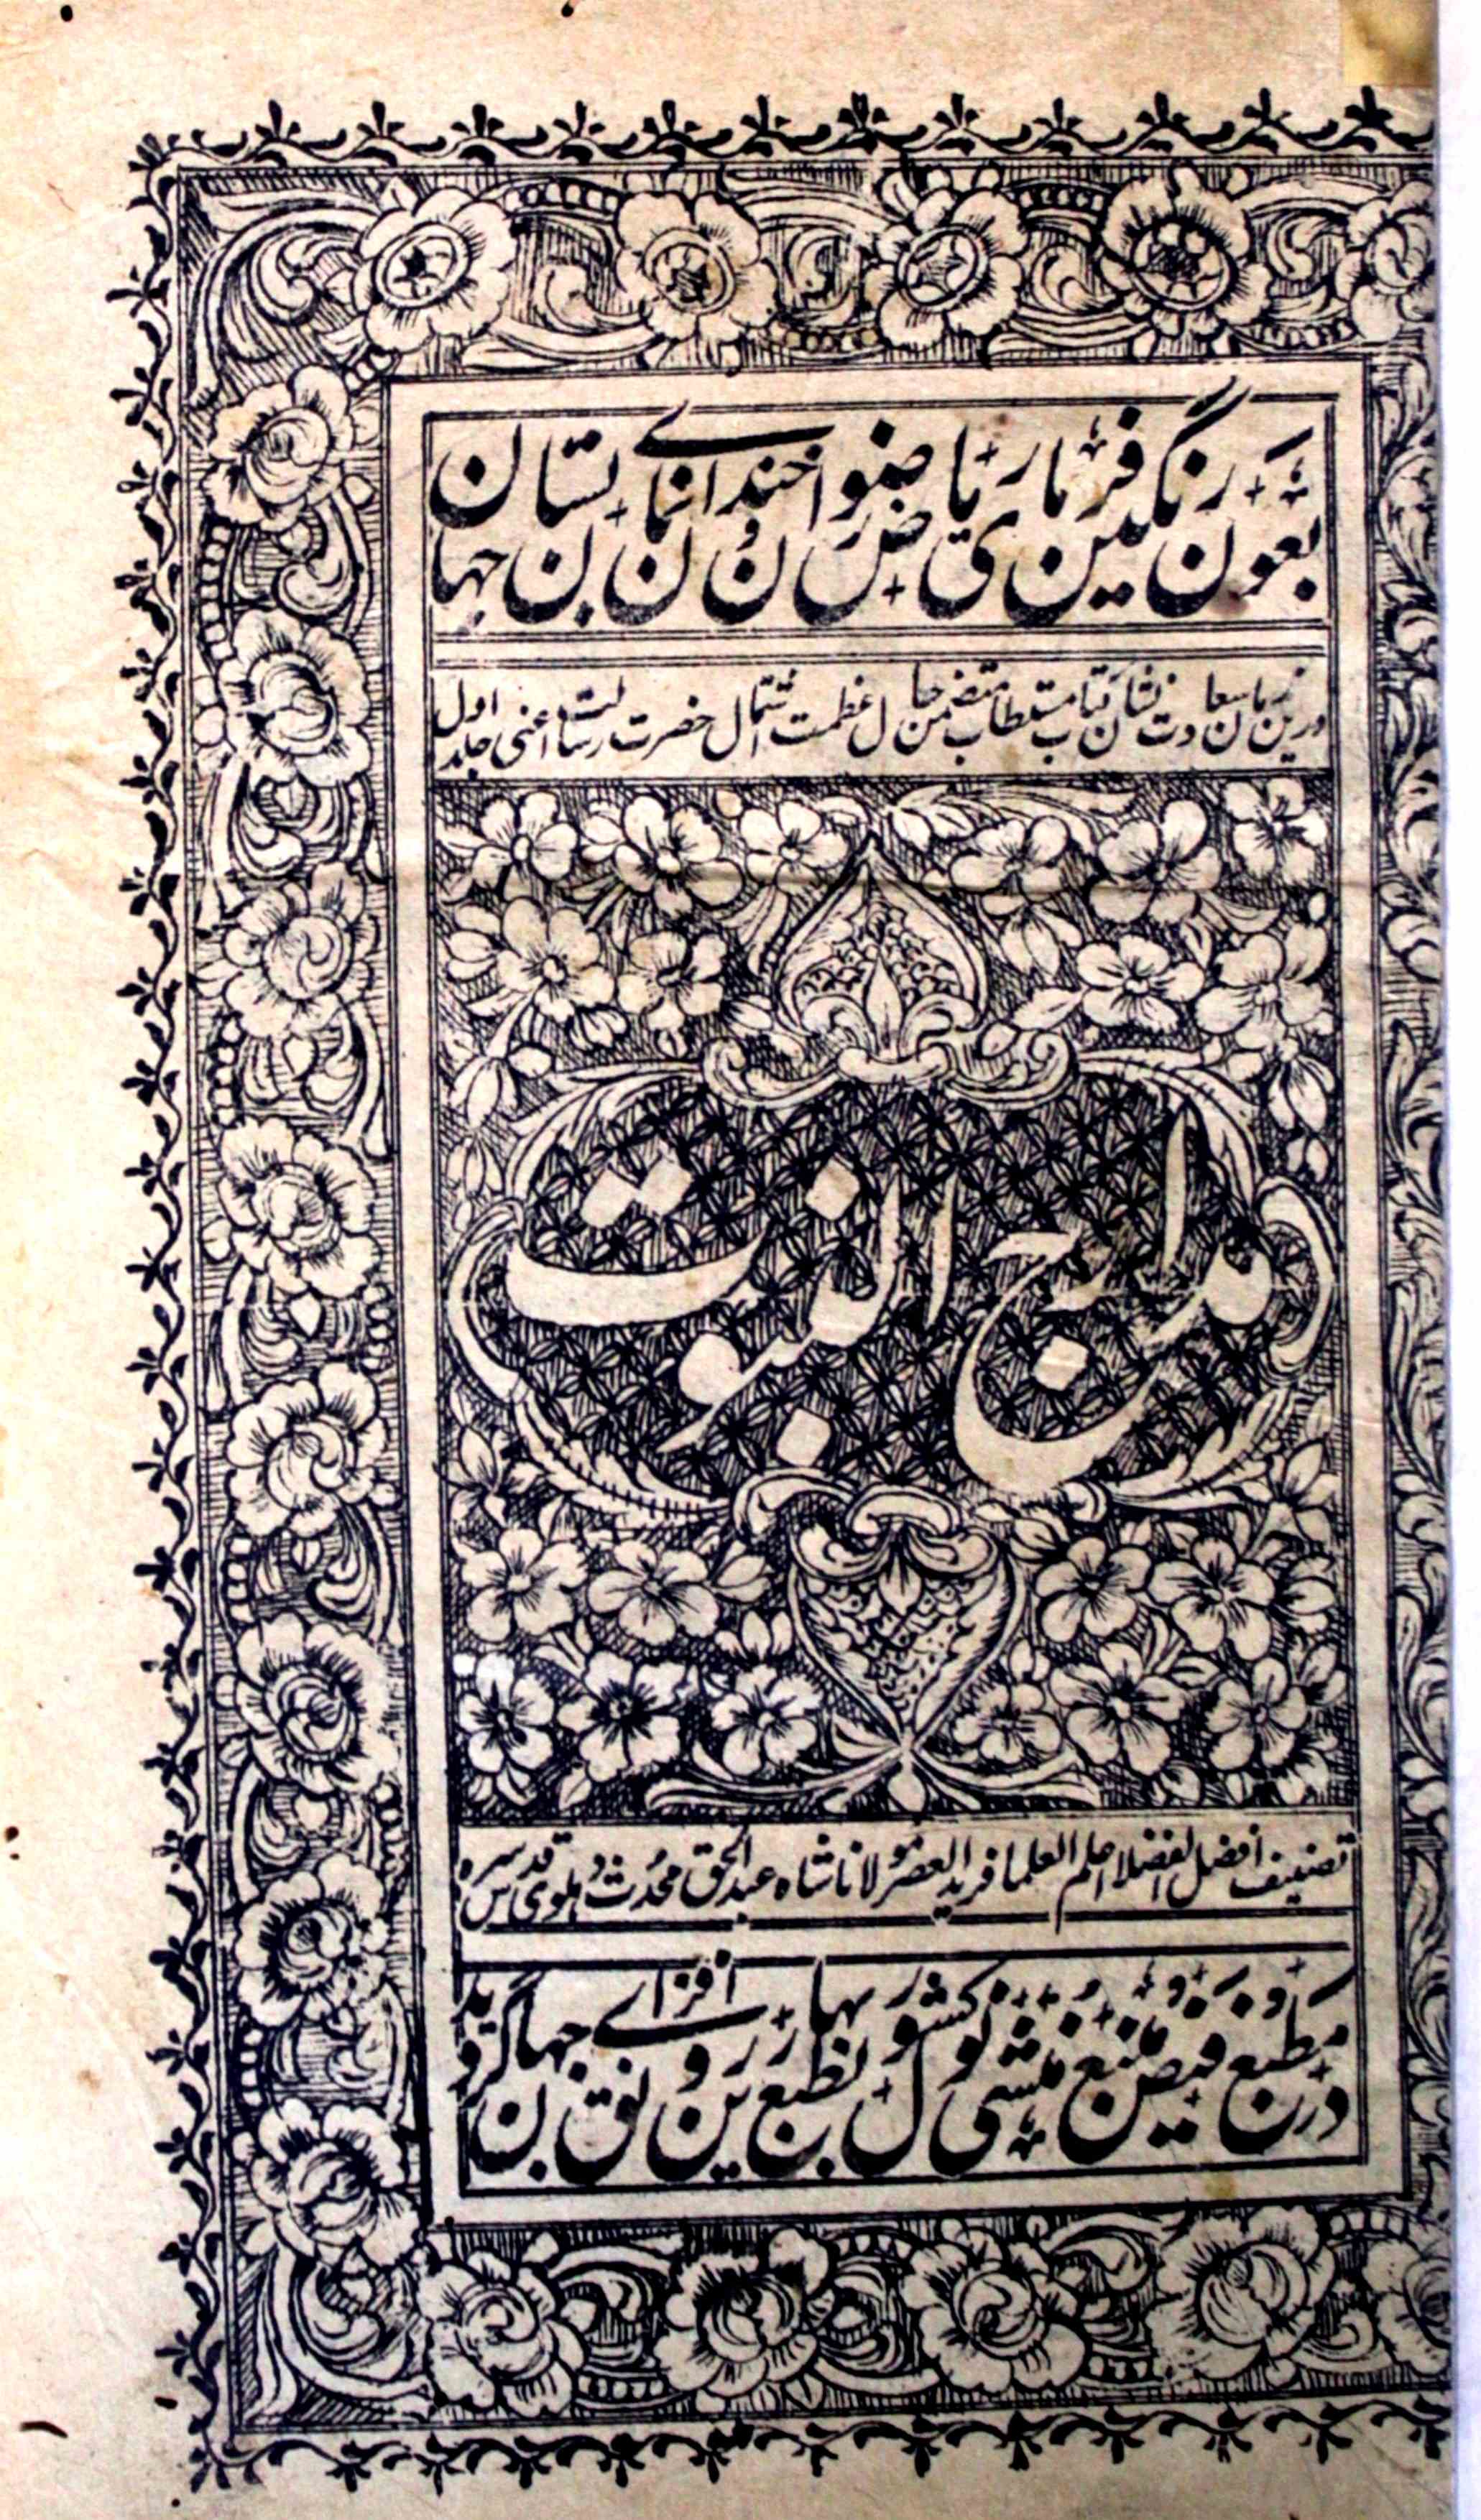 بعون رنگین فرمای ریاض رضوان و خندانی انبان بستان جهان
درین زمان سعادت نشان کتاب مستطاب متضمن حال عظمت اشتمال حضرت رسالت اعنی جلد اول
مدارج النبوت
تصنیف افضل الفضلا اعلم العلما فرید العصر مولانا شاه عبد الحق محدث دهلوی قدس سره
در مطبع فیض منبع منشی نولکشور بطبع زرین رونق افزای بهار جهان گردید